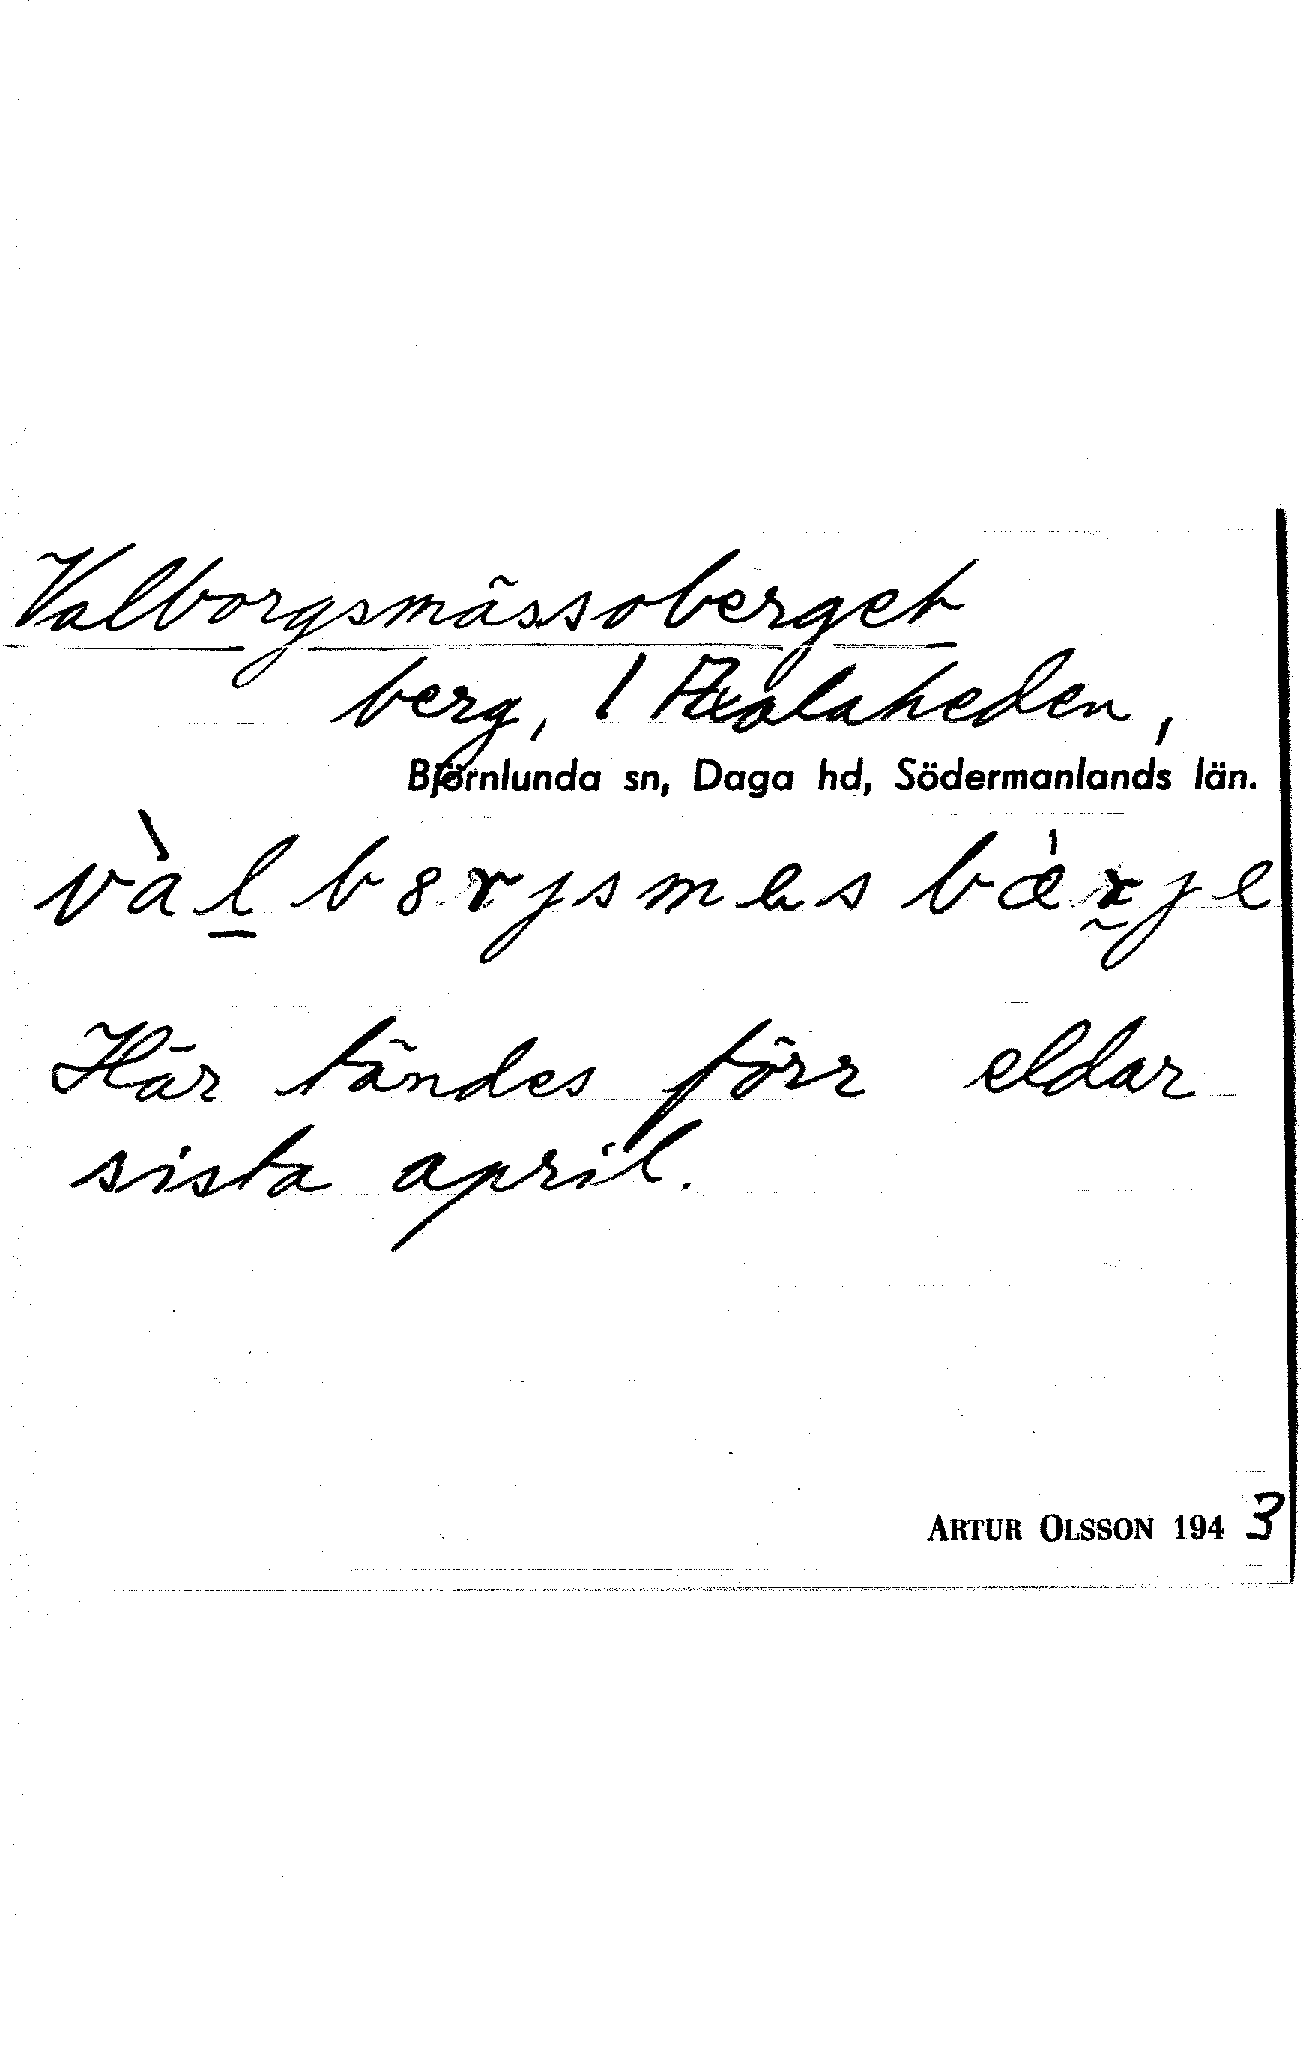 Valborgsmässoberget
berg, 1 Axalaheden,
Björnlunda sn, Daga hd, Södermanlands län.
vàl̲b8rjsmɛsbæ̀r̰je
Här tändes förr eldar
sista april.
ARTUR OLSSON 1943